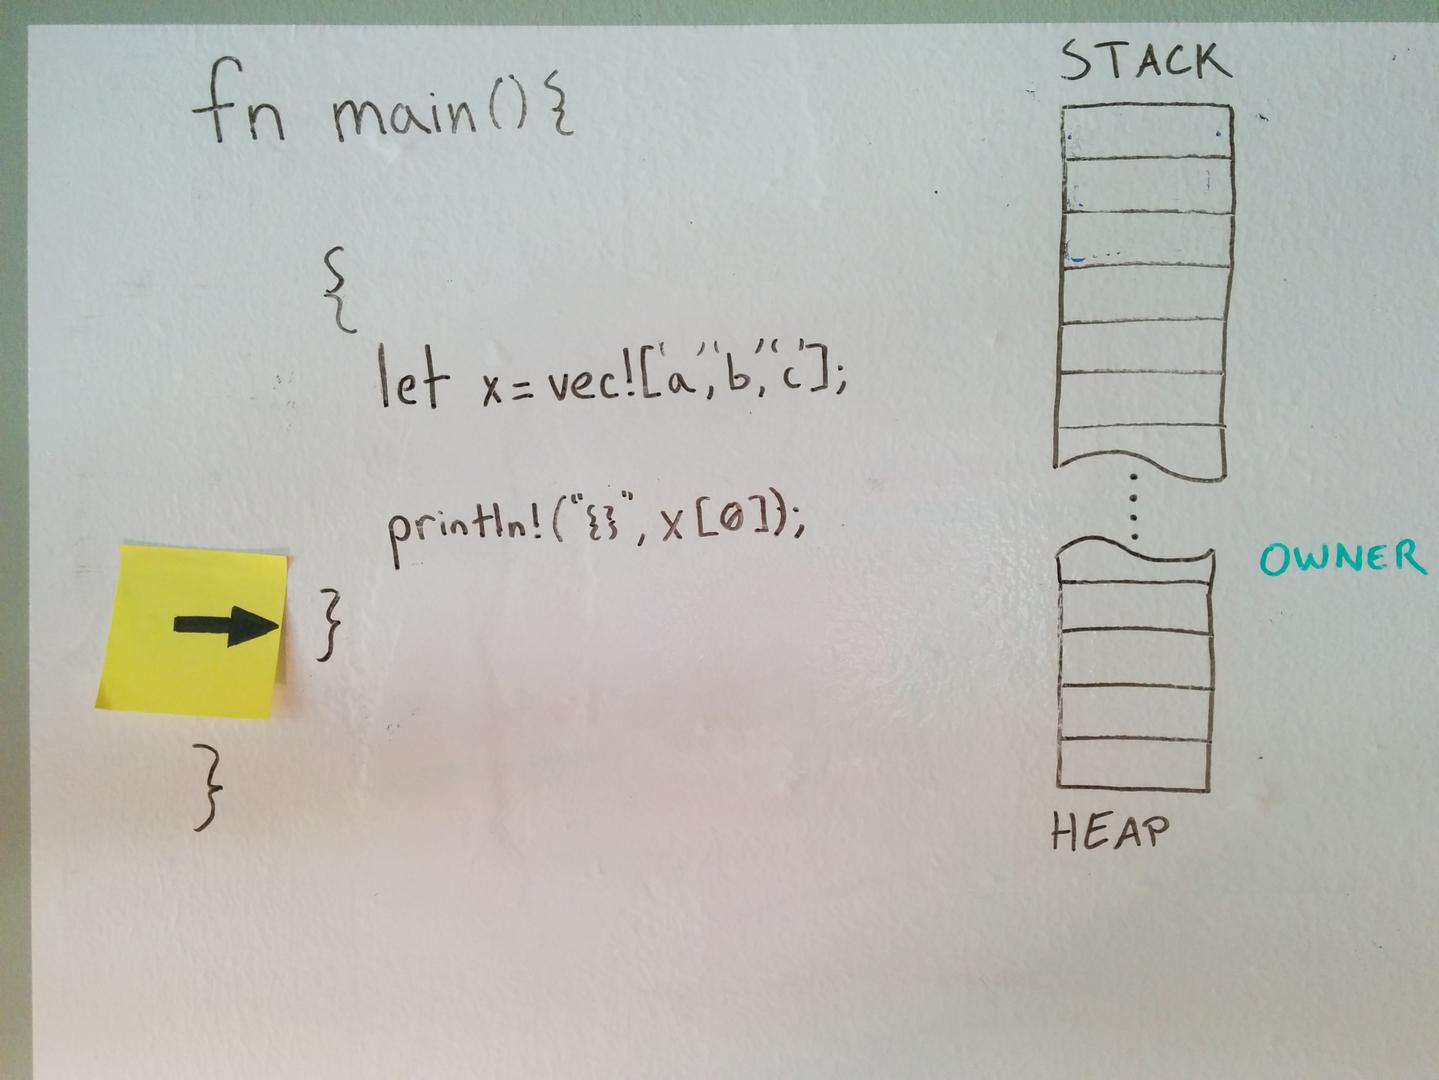 fn main(){
{
let x = vec!['a','b','c'];
println!("{}", x[0]);
}
}
STACK
OWNER
HEAP